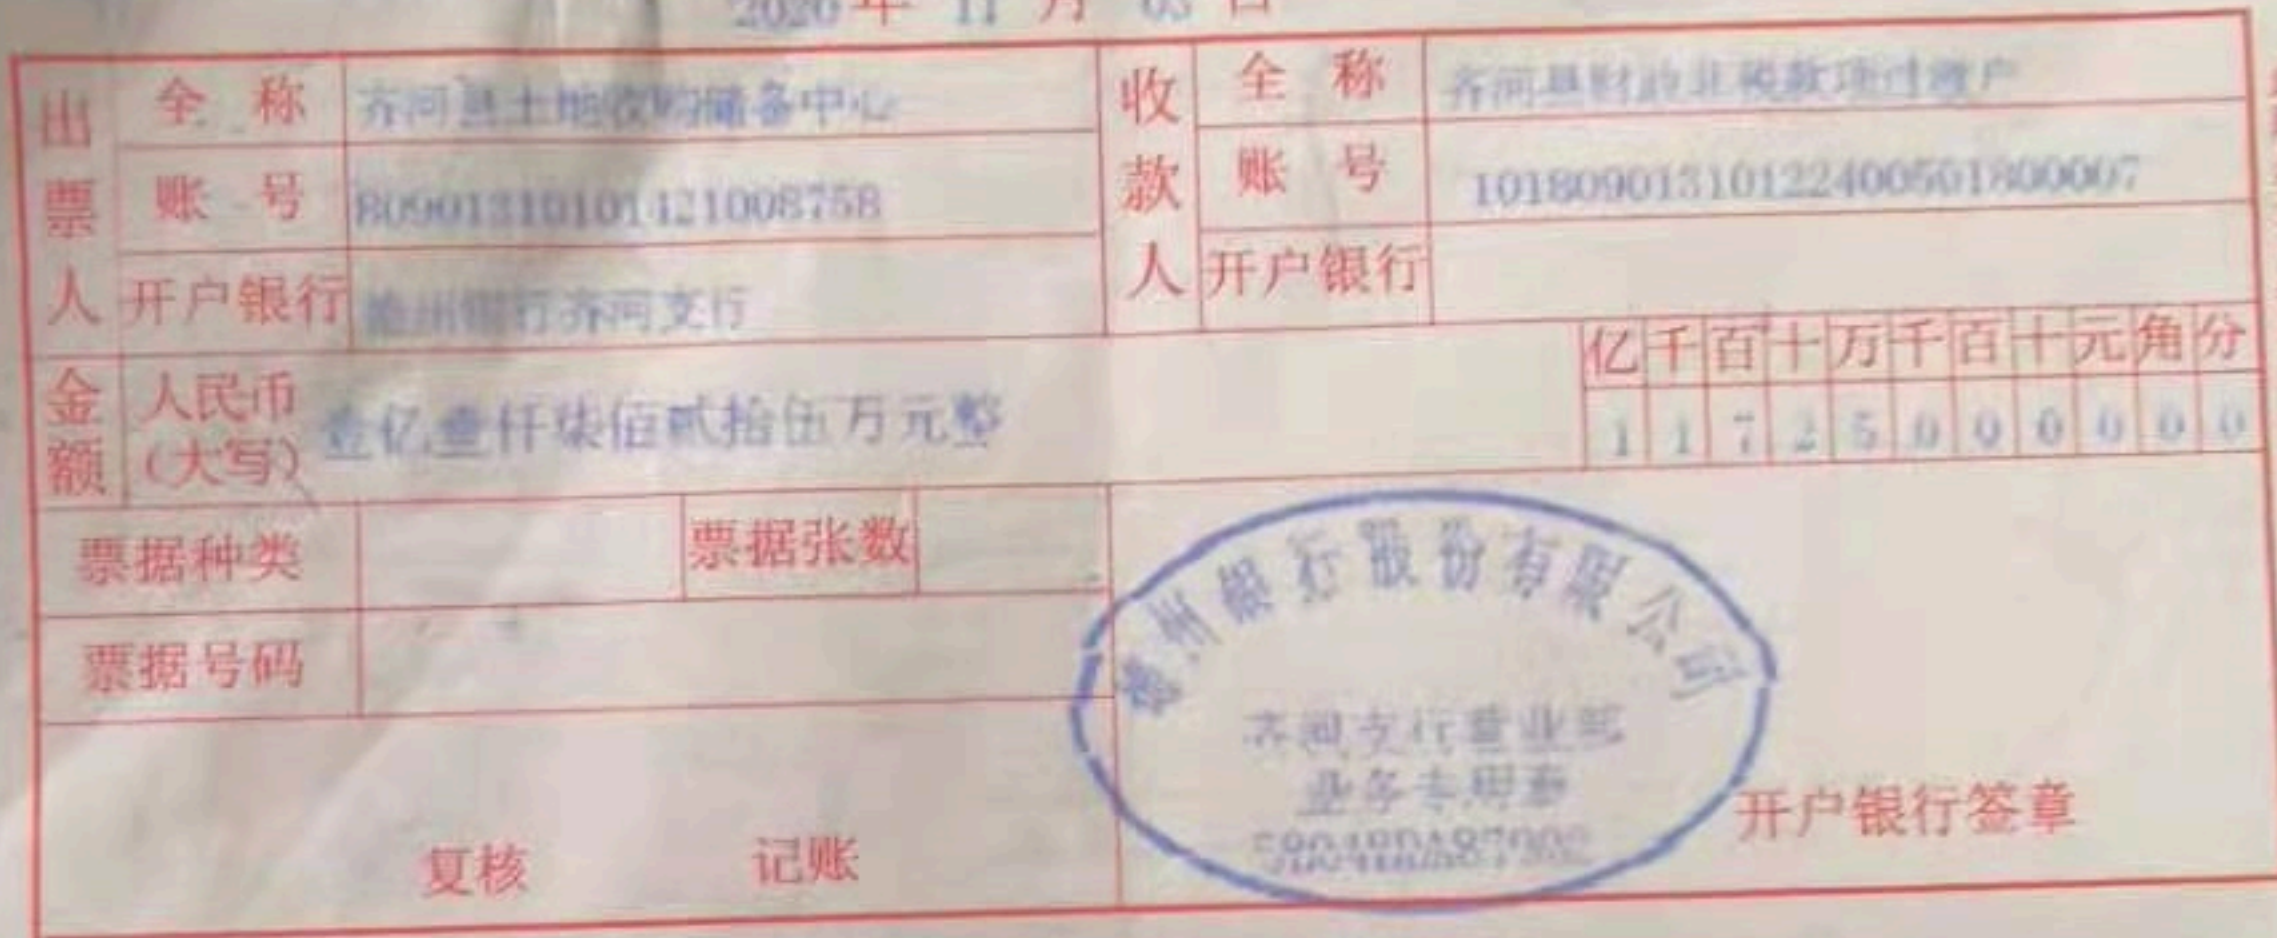 2020 年 11 月 03 日
出票人
全 称 齐河县土地收购储备中心
账 号 809013101011421008758
开户银行 德州银行齐河支行
收款人
全 称 齐河县财政非税款项过渡户
账 号 101809013101224005018000​07
开户银行
金额
人民币(大写) 壹亿壹仟柒佰贰拾伍万元整
亿 千 百 十 万 千 百 十 元 角 分
1 1 7 2 5 0 0 0 0 0 0
票据种类 票据张数
票据号码
德州银行股份有限公司
齐河支行营业部
业务专用章
开户银行签章
复核 记账